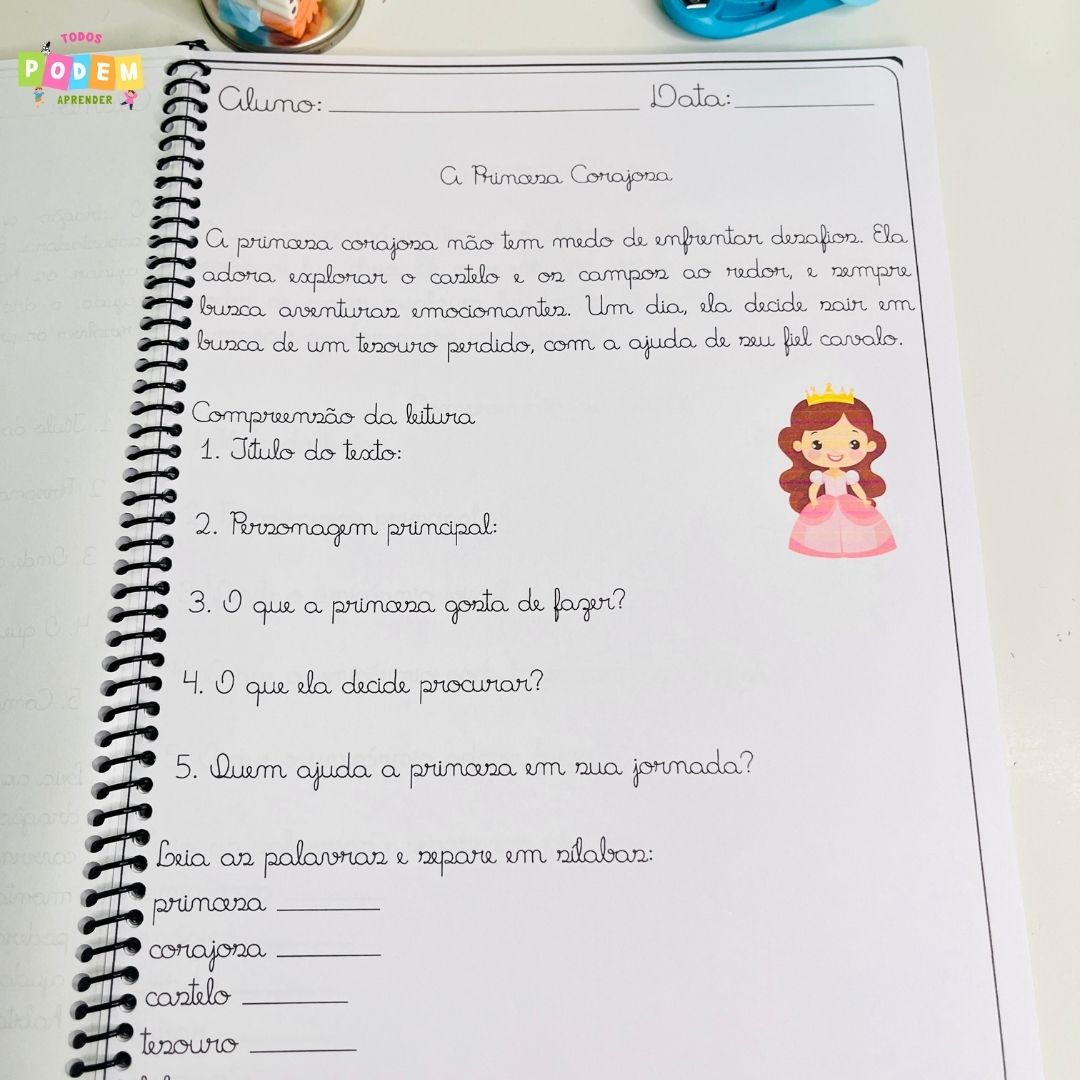 TODOS
PODEM
APRENDER
Aluno: ____________ Data: ________
A Princesa Corajosa
A princesa corajosa não tem medo de enfrentar desafios. Ela
adora explorar o castelo e os campos ao redor, e sempre
busca aventuras emocionantes. Um dia, ela decide sair em
busca de um tesouro perdido, com a ajuda de seu fiel cavalo.
Compreensão da leitura
1. Título do texto:
2. Personagem principal:
3. O que a princesa gosta de fazer?
4. O que ela decide procurar?
5. Quem ajuda a princesa em sua jornada?
Leia as palavras e separe em sílabas:
princesa ________
corajosa ________
castelo ________
tesouro ________